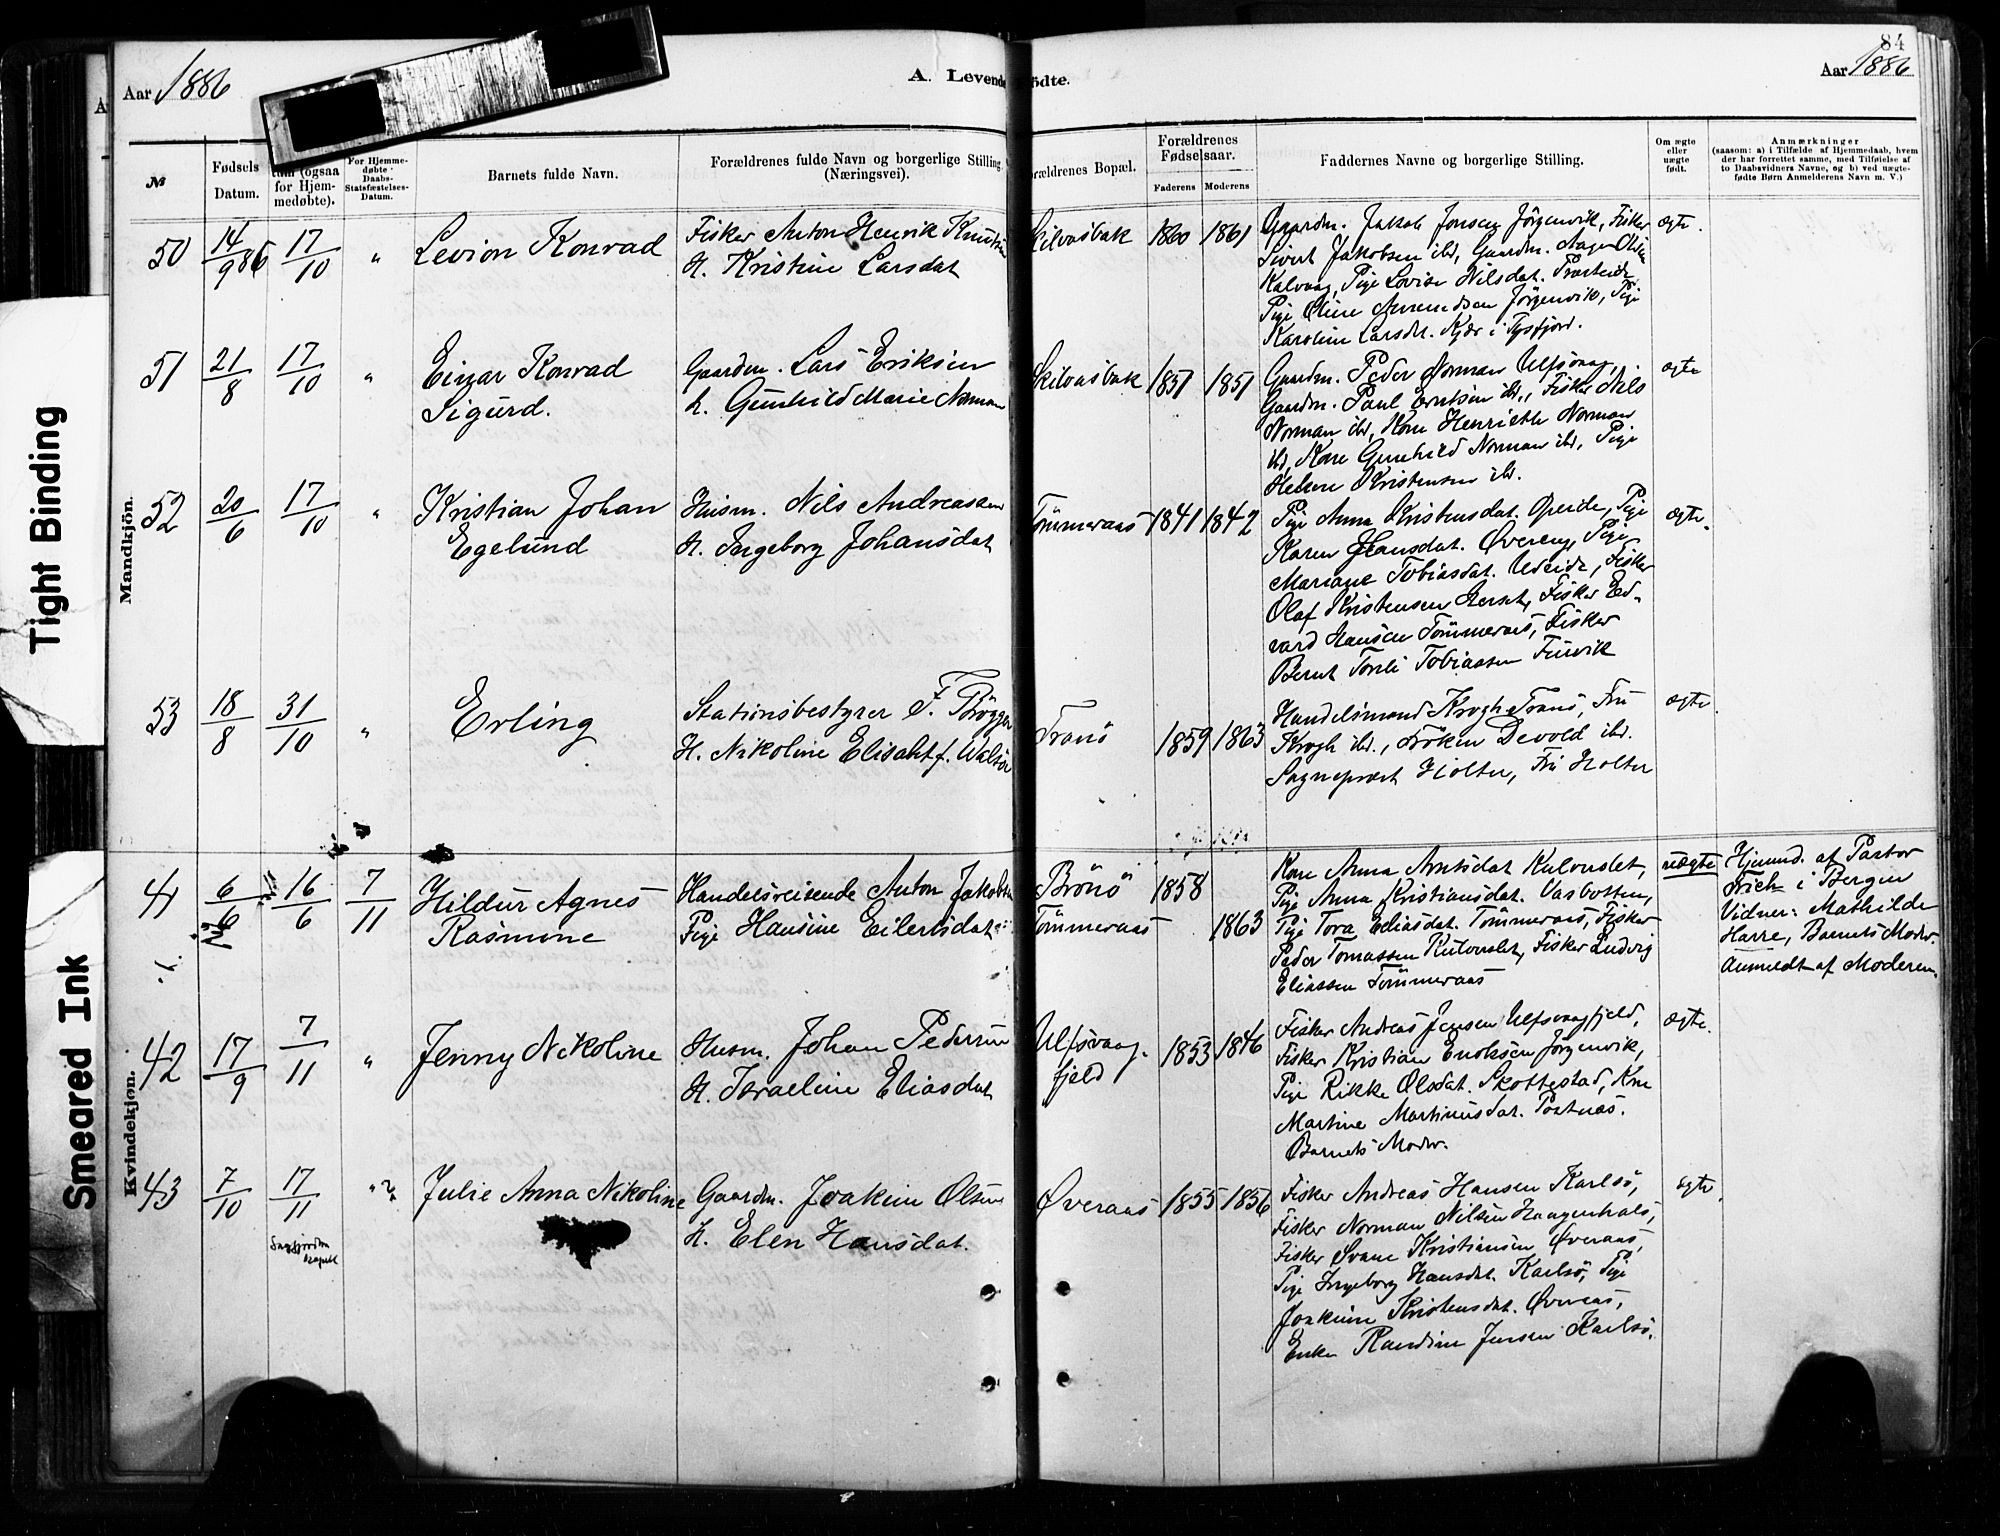 Aar 1886
A. Levendefødte.
84
Aar 1886
№
Fødsels Datum.
(ogsaa for Hjemmedøbte).
For Hjemmedøbte Daabs-Statsfæstelses-Datum.
Barnets fulde Navn.
Forældrenes fulde Navn og borgerlige Stilling (Næringsvei).
Forældrenes Bopæl.
Forældrenes Fødselsaar.
Faderens
Moderens
Faddernes Navne og borgerlige Stilling.
Om ægte eller uægte født.
Anmærkninger
(saasom: a) i Tilfælde af Hjemmedaab, hvem
der har forrettet samme, med Tilføielse af
to Daabsvidners Navne, og b) ved uægte-
fødte Børn Anmelderens Navn m. V.)
Tight Binding
Smeared Ink
Mandkjön.
50
14/9 86
17/10
"
Levion Konrad
Fisker Anton Henrik Knutsen
H. Kristine Larsdat
Skilvasbak
1860
1861
Gaardm. Jakob Jonsen Jörgenvik, Fisker
Sivert Jakobsen ibd, Gaardm. Aage Olsen
Kalvaag, Pige Lovise Nilsdat.
Pige Oline Amundsen Jörgenvik, Pige
Karoline Larsdt. Kjær i Tysfjord.
ægte.
51
21/8
17/10
"
Einar Konrad
Sigurd.
Gaardm. Lars Eriksen
h. Gunhild Marie Norman
Skilvasbak
1851
1851
Gaardm. Peder Norman Ulfsvaag,
Gaardm. Paul Eriksen ibd., Fisker Nils
Norman ibd, Kone Henriette Norman
ibd, Kone Gunhild Norman ibd, Pige
Helene Kristensen ibd.
ægte
52
20/6
17/10
"
Kristian Johan
Egelund
Husm. Nils Andreassen
H. Ingeborg Johansdat
Tömmeraas
1841
1842
Pige Anna Kristensdat. Opeide, Pige
Karen Hansdat. Øvereng, Pige
Mariane Tobiasdat. Uteide, Fisker
Olaf Kristensen Gerset, Fisker Ed-
vard Hansen Tömmeraas, Fisker
Bernt Torli Tobiassen Finvik
ægte.
53
18/8
31/10
"
Erling
Stationsbestyrer F. Brögger
H. Nikoline Elisabt f. Walsöe
Tranö
1859
1863
Handelsmand Krogh Tranö, Fru
Krogh ibd., Fröken Devold ibd.
Sogneprest Holter, Fru Holter
ægte.
Kvindekjøn.
41
6/6
16/6
7/11
Hildur Agnes
Rasmine
Handelsreisende Anton Jakobsen
Pige Hansine Eilertsdat
Brönö
Tömmeraas
1858
1863
Kone Anna Arntsdat Kulovslet,
Pige Anna Kristiansdat. Vasbotten,
Pige Tora Eliasdat. Tömmeraas, Fisker
Peder Tomassen Kulovslet, Fisker Ludvig
Eliassen Tömmeraas
uægte
Hjemmd. af Pastor
Frich i Bergen
Vidner: Mathilde
Harre, Barnets Moder.
Anmeldt af Moderen.
42
17/9
7/11
"
Jenny Nikoline
Husm. Johan Pedersen
H. Israeline Eliasdat
Ulfsvaag-
fjeld
1853
1846
Fisker Andreas Jensen Ulfsvaagfjeld,
Fisker Kristian Enoksen Jörgenvik,
Pige Rikke Olsdat. Skottestad, Kone
Martine Martinusdat. Postnæs.
Barnets Moder.
ægte.
43
7/10
17/11
Sagfjorden
kapell
"
Julie Anna Nikoline
Gaardm. Joakim Olsen
h. Elen Hansdat.
Øveraas
1855
1856
Fisker Andreas Hansen Karlsö,
Fisker Norman Nilsen Haagenhals,
Fisker Svane Kristiansen Øveraas,
Pige Ingeborg Hansdat. Karlsö, Pige
Joakime Kristensdat. Øveraas,
Enke Randine Jensen Karlsö.
ægte.